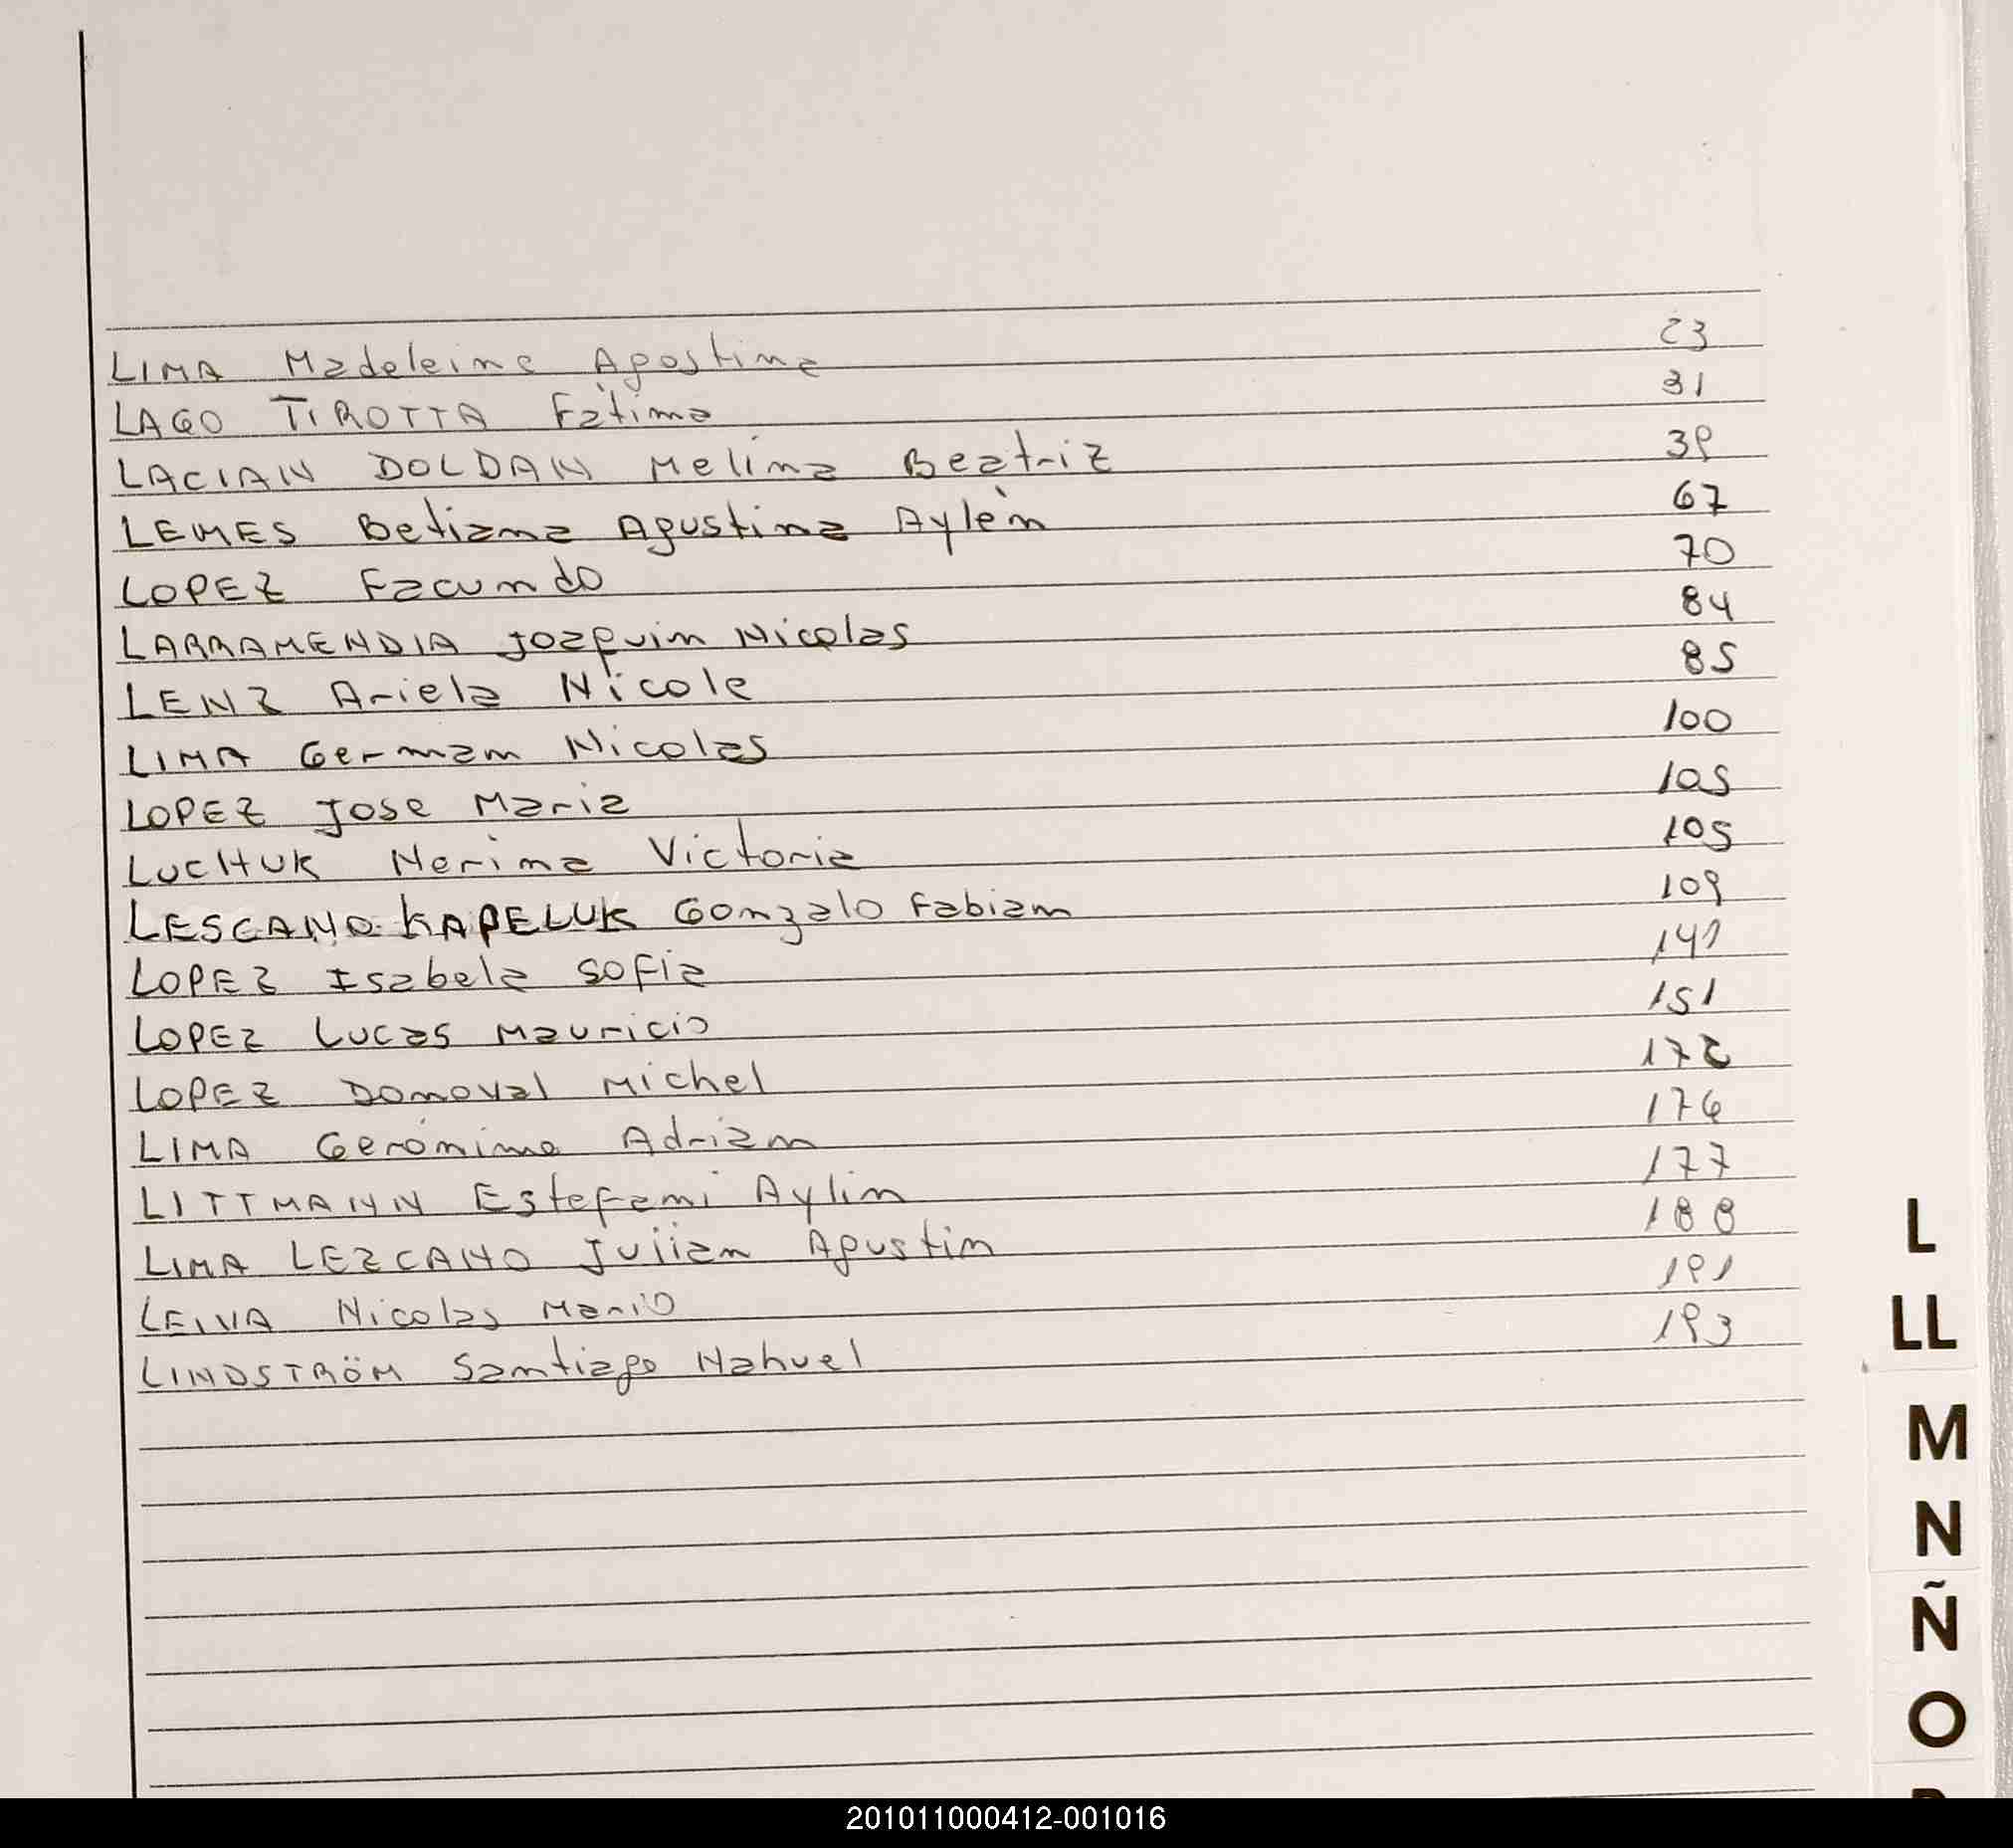 LIMA Madeleine Agostina 23
LAGO TIROTTA Fátima 31
LACIAN DOLDAN Melina Beatriz 39
LEMES Betiana Agustina Aylén 67
LOPEZ Facundo 70
LARRAMENDIA Joaquin Nicolas 84
LENZ Ariela Nicole 85
LIMA German Nicolas 100
LOPEZ Jose Maria 105
LUCHUK Nerina Victoria 105
LESCANO KAPELUK Gonzalo Fabian 109
LOPEZ Isabela Sofia
LOPEZ Lucas Mauricio 151
LOPEZ Donoval Michel 172
LIMA Gerónimo Adrian 176
LITTMANN Estefani Aylin 177
LIMA LEZCANO Julian Agustin 188
LEIVA Nicolas Mario 191
LINDSTRÖM Santiago Nahuel 193
L
LL
M
N
Ñ
O
201011000412-001016